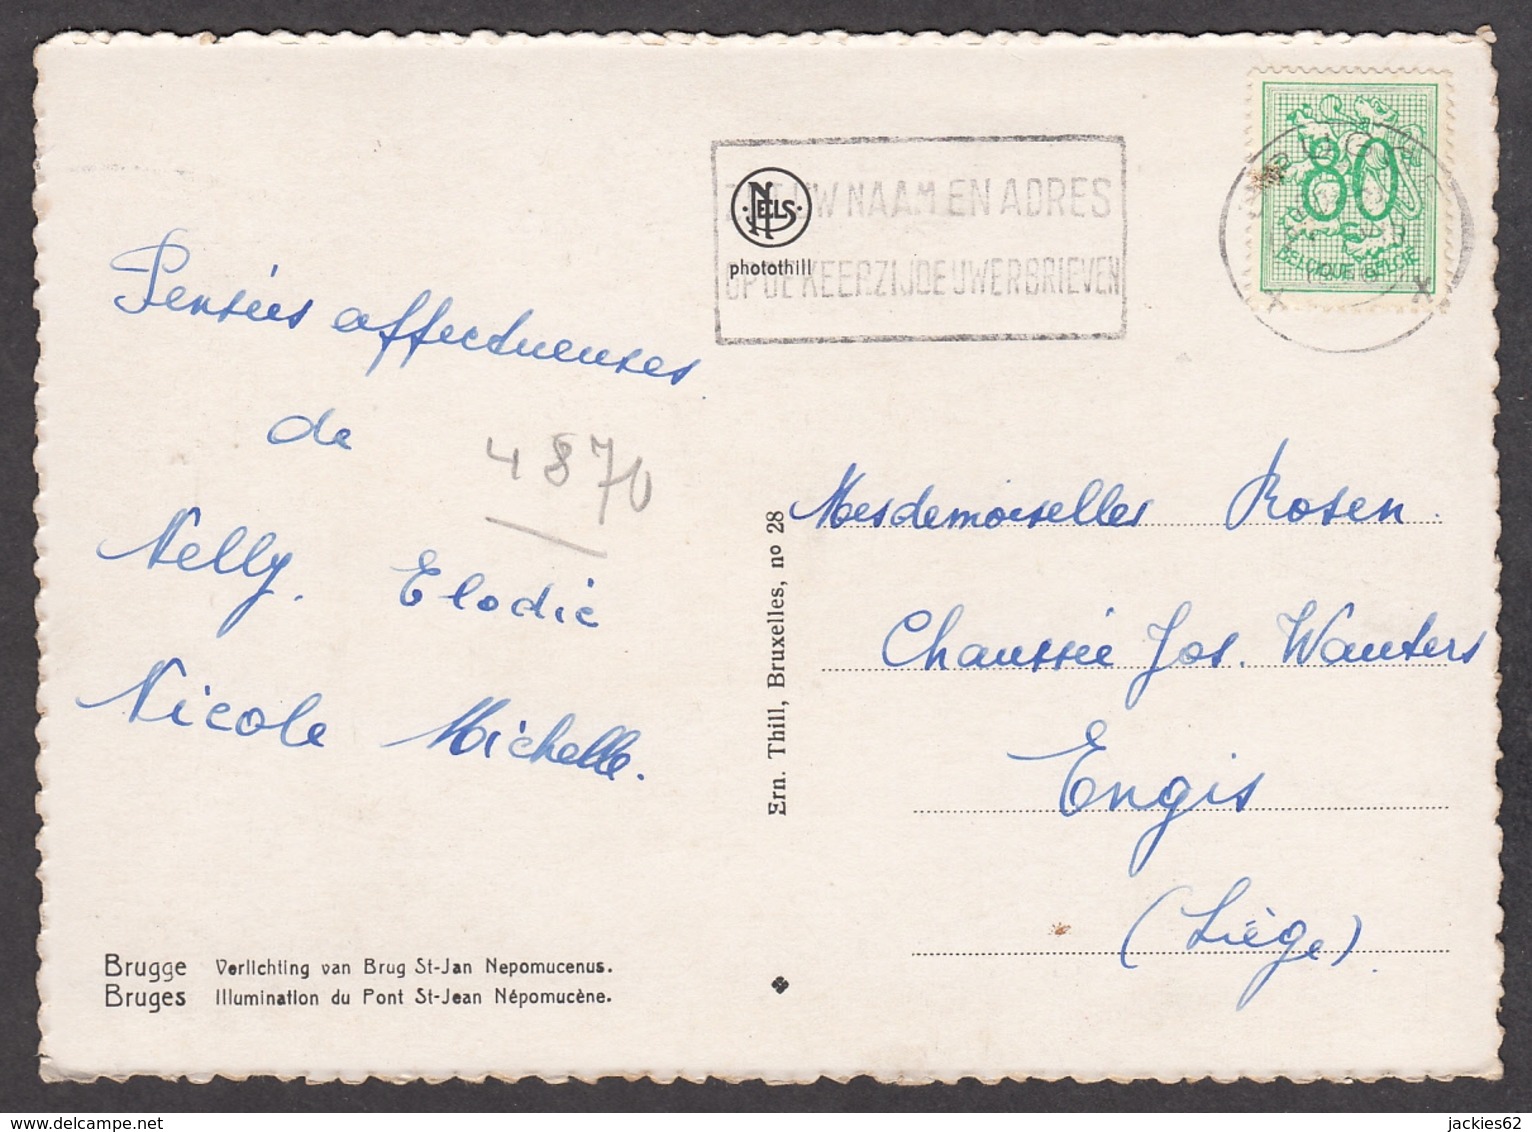 Pensées affectueuses
de
4870
Nelly. Elodie
Nicole Michelle.
Brugge Verlichting van Brug St-Jan Nepomucenus.
Bruges Illumination du Pont St-Jean Népomucène.
Ern. Thill, Bruxelles, nº 28
NELS
photothill
UW NAAM EN ADRES
OP DE KEERZIJDE UWER BRIEVEN
80
BELGIQUE BELGIE
Mesdemoiselles Rosen.
Chaussée Jos. Wauters
Engis
(Liège)
jackies62